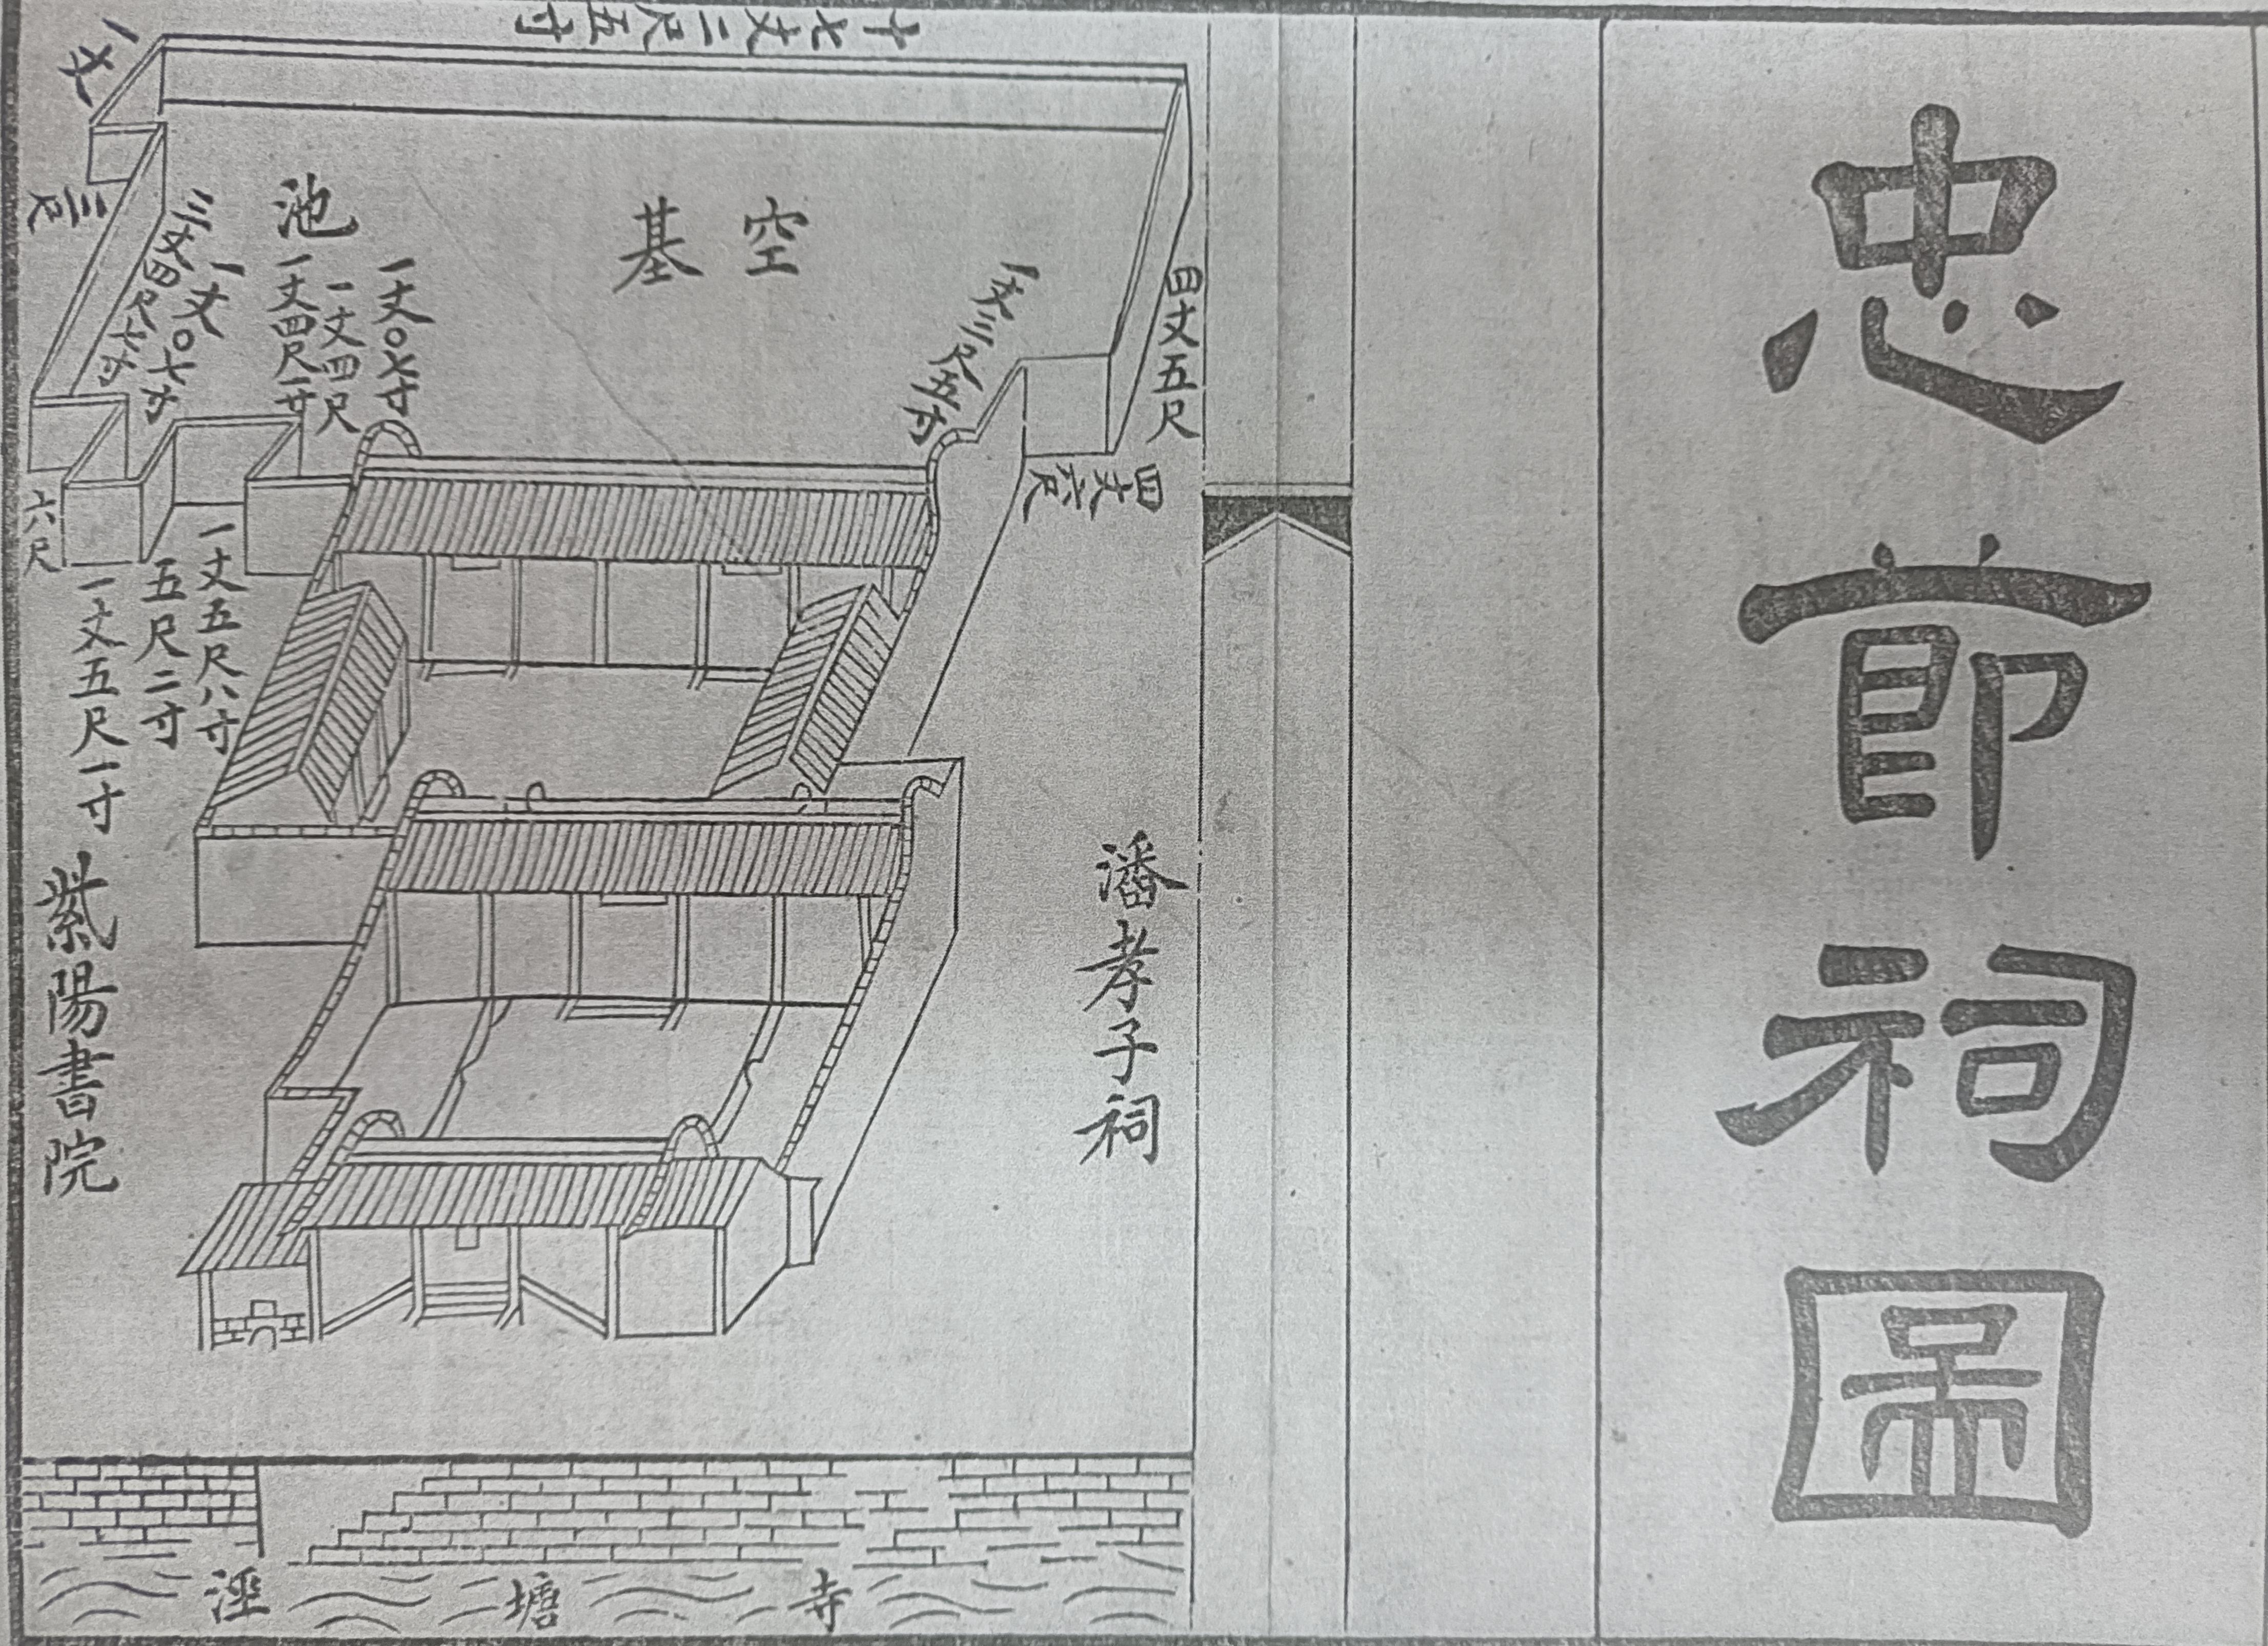 忠節祠圖
潘孝子祠
四丈五尺
四丈六尺
一丈三尺五寸
空基
十七丈二尺五寸
一丈
三尺
池
一丈〇七寸
一丈四尺
一丈四尺一寸
一丈〇七寸
三丈四尺七寸
六尺
一丈五尺八寸
五尺二寸
一丈五尺一寸
紫陽書院
寺塘涇